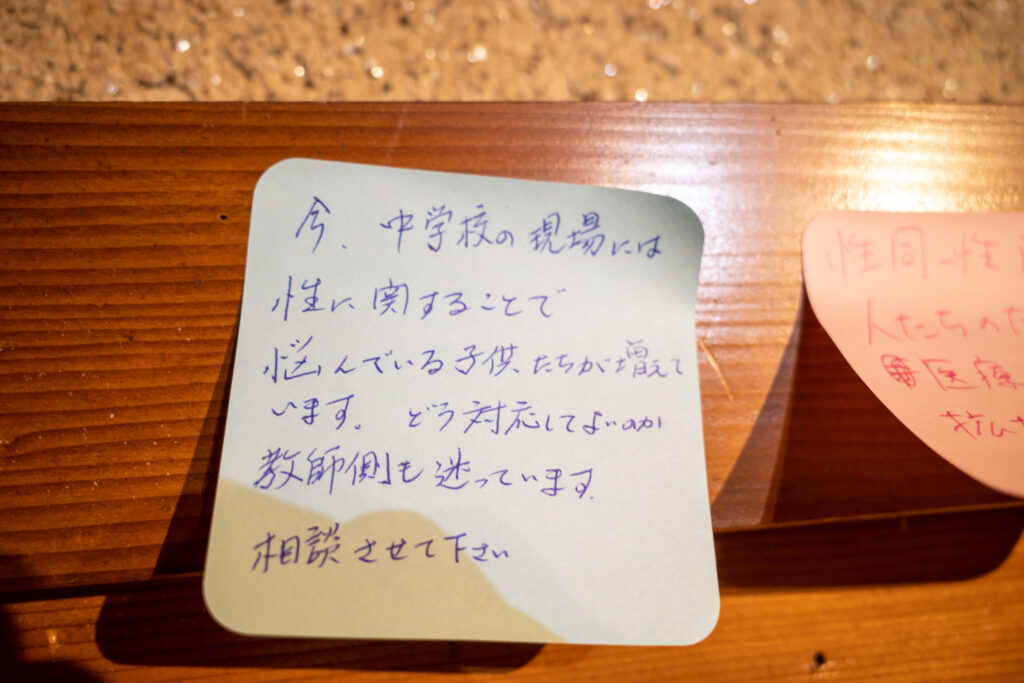 今、中学校の現場には
性に関することで
悩んでいる子供たちが増えて
います。 どう対応してよいのか
教師側も迷っています。
相談させて下さい
性同一性
人たちの
医療